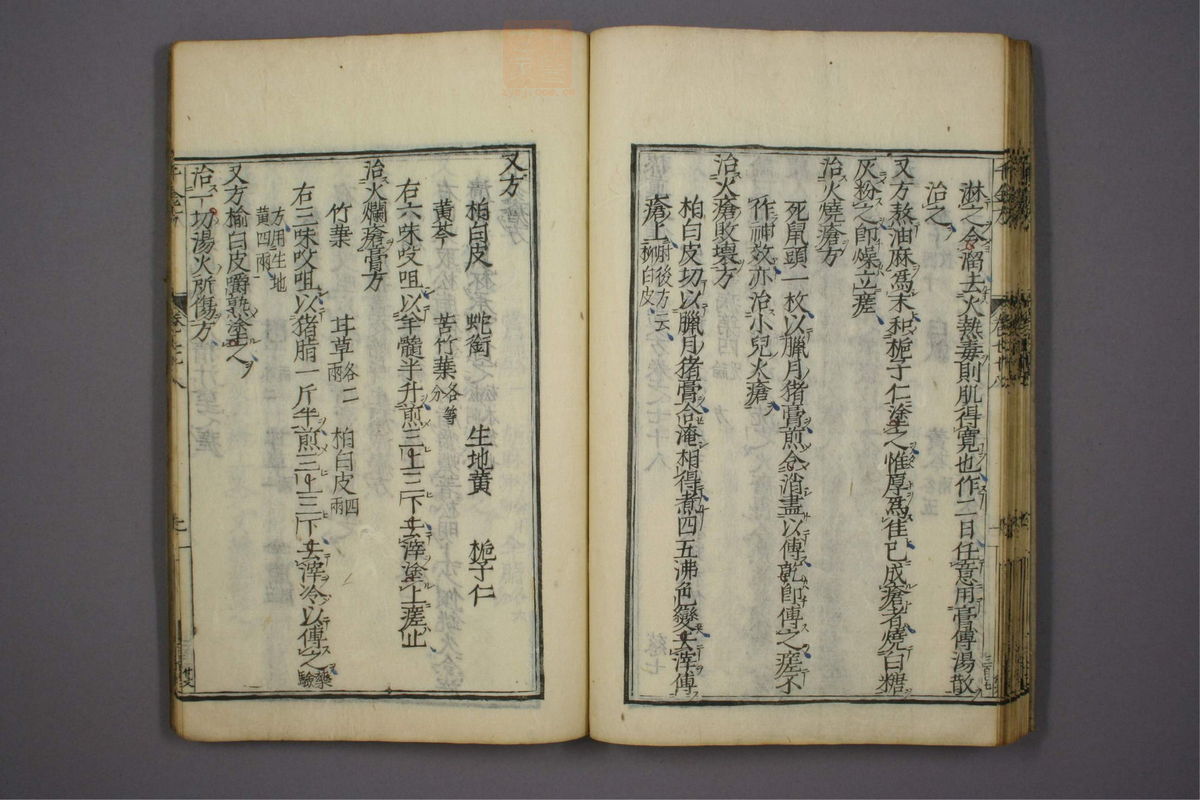 淋之令溜去火熱毒則肌得寬也作二日任意用膏傅湯散
治之
又方熬油麻爲末和梔子仁塗之惟厚爲佳已成瘡者燒白糖
灰粉之即燥立瘥
治火燒瘡方
死鼠頭一枚以臘月猪膏煎令消盡以傅乾即傅之瘥不
作神效亦治小兒火瘡
治火瘡敗壞方
柏白皮切以臘月猪膏合淹相得煮四五沸色變去滓傅
瘡上肘後方云柳白皮
又方
柏白皮 蛇銜 生地黃 梔子仁
黃芩 苦竹葉各等分
右六味㕮咀以羊髓半升煎三上三下去滓塗上瘥止
治火爛瘡膏方
竹葉 甘草各二兩 柏白皮四兩
右三味㕮咀以猪脂一斤半煎三上三下去滓冷以傅之
方用生地黃四兩
又方榆白皮嚼熟塗之
治一切湯火所傷方